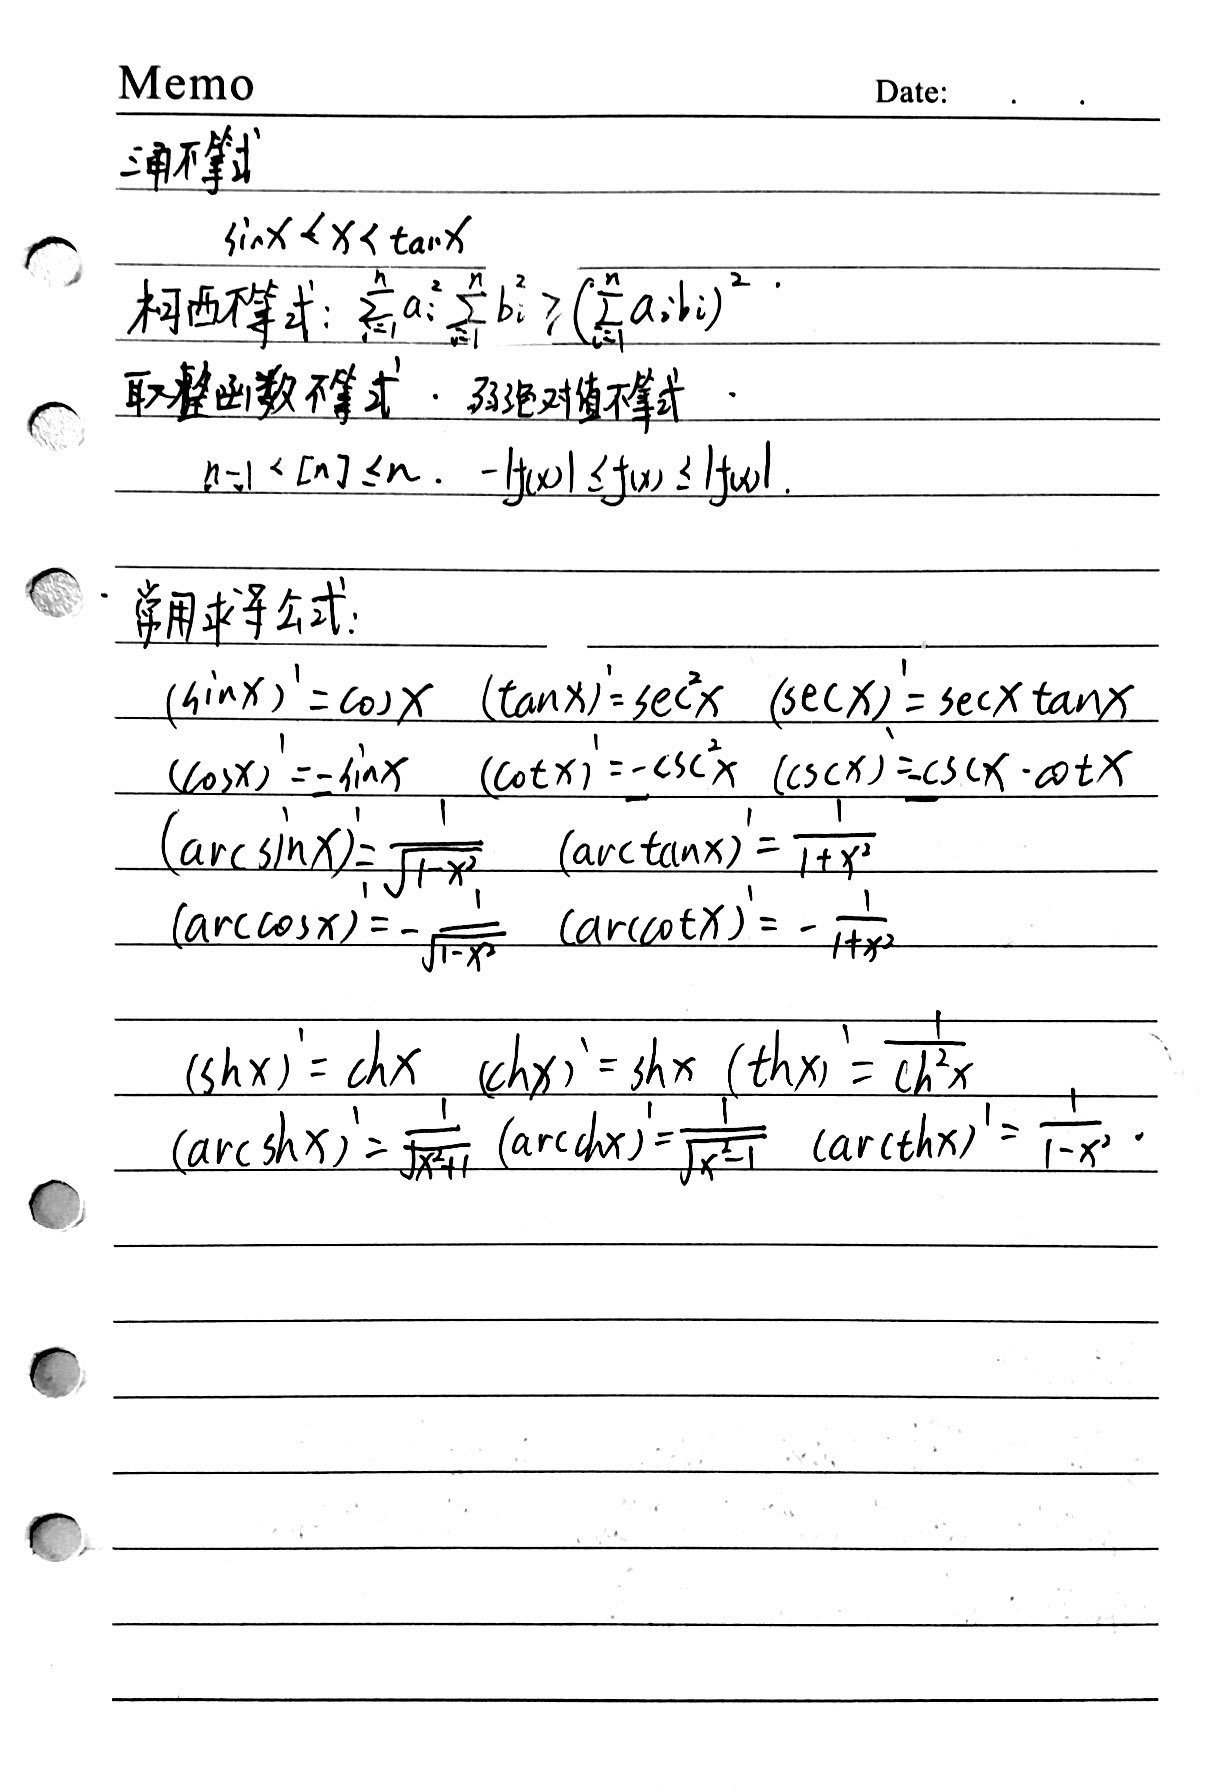 Memo Date: . .
三角不等式
sinx < x < tanx
柯西不等式: $\sum_{i=1}^{n} a_i^2 \sum_{i=1}^{n} b_i^2 \geq (\sum_{i=1}^{n} a_i b_i)^2$ .
取整函数不等式 . 弱绝对值不等式 .
n-1 < [n] ≤ n . -|f(x)| ≤ f(x) ≤ |f(x)| .
· 常用求导公式:
(sinx)' = cosx (tanx)' = sec²x (secx)' = secx tanx
(cosx)' = -sinx (cotx)' = -csc²x (cscx)' = -cscx · cotx
(arcsinx)' = $\frac{1}{\sqrt{1-x^2}}$ (arctanx)' = $\frac{1}{1+x^2}$
(arccosx)' = $-\frac{1}{\sqrt{1-x^2}}$ (arccotx)' = $-\frac{1}{1+x^2}$
(shx)' = chx (chx)' = shx (thx)' = $\frac{1}{ch^2x}$
(arcshx)' = $\frac{1}{\sqrt{x^2+1}}$ (arcchx)' = $\frac{1}{\sqrt{x^2-1}}$ (arcthx)' = $\frac{1}{1-x^2}$ .